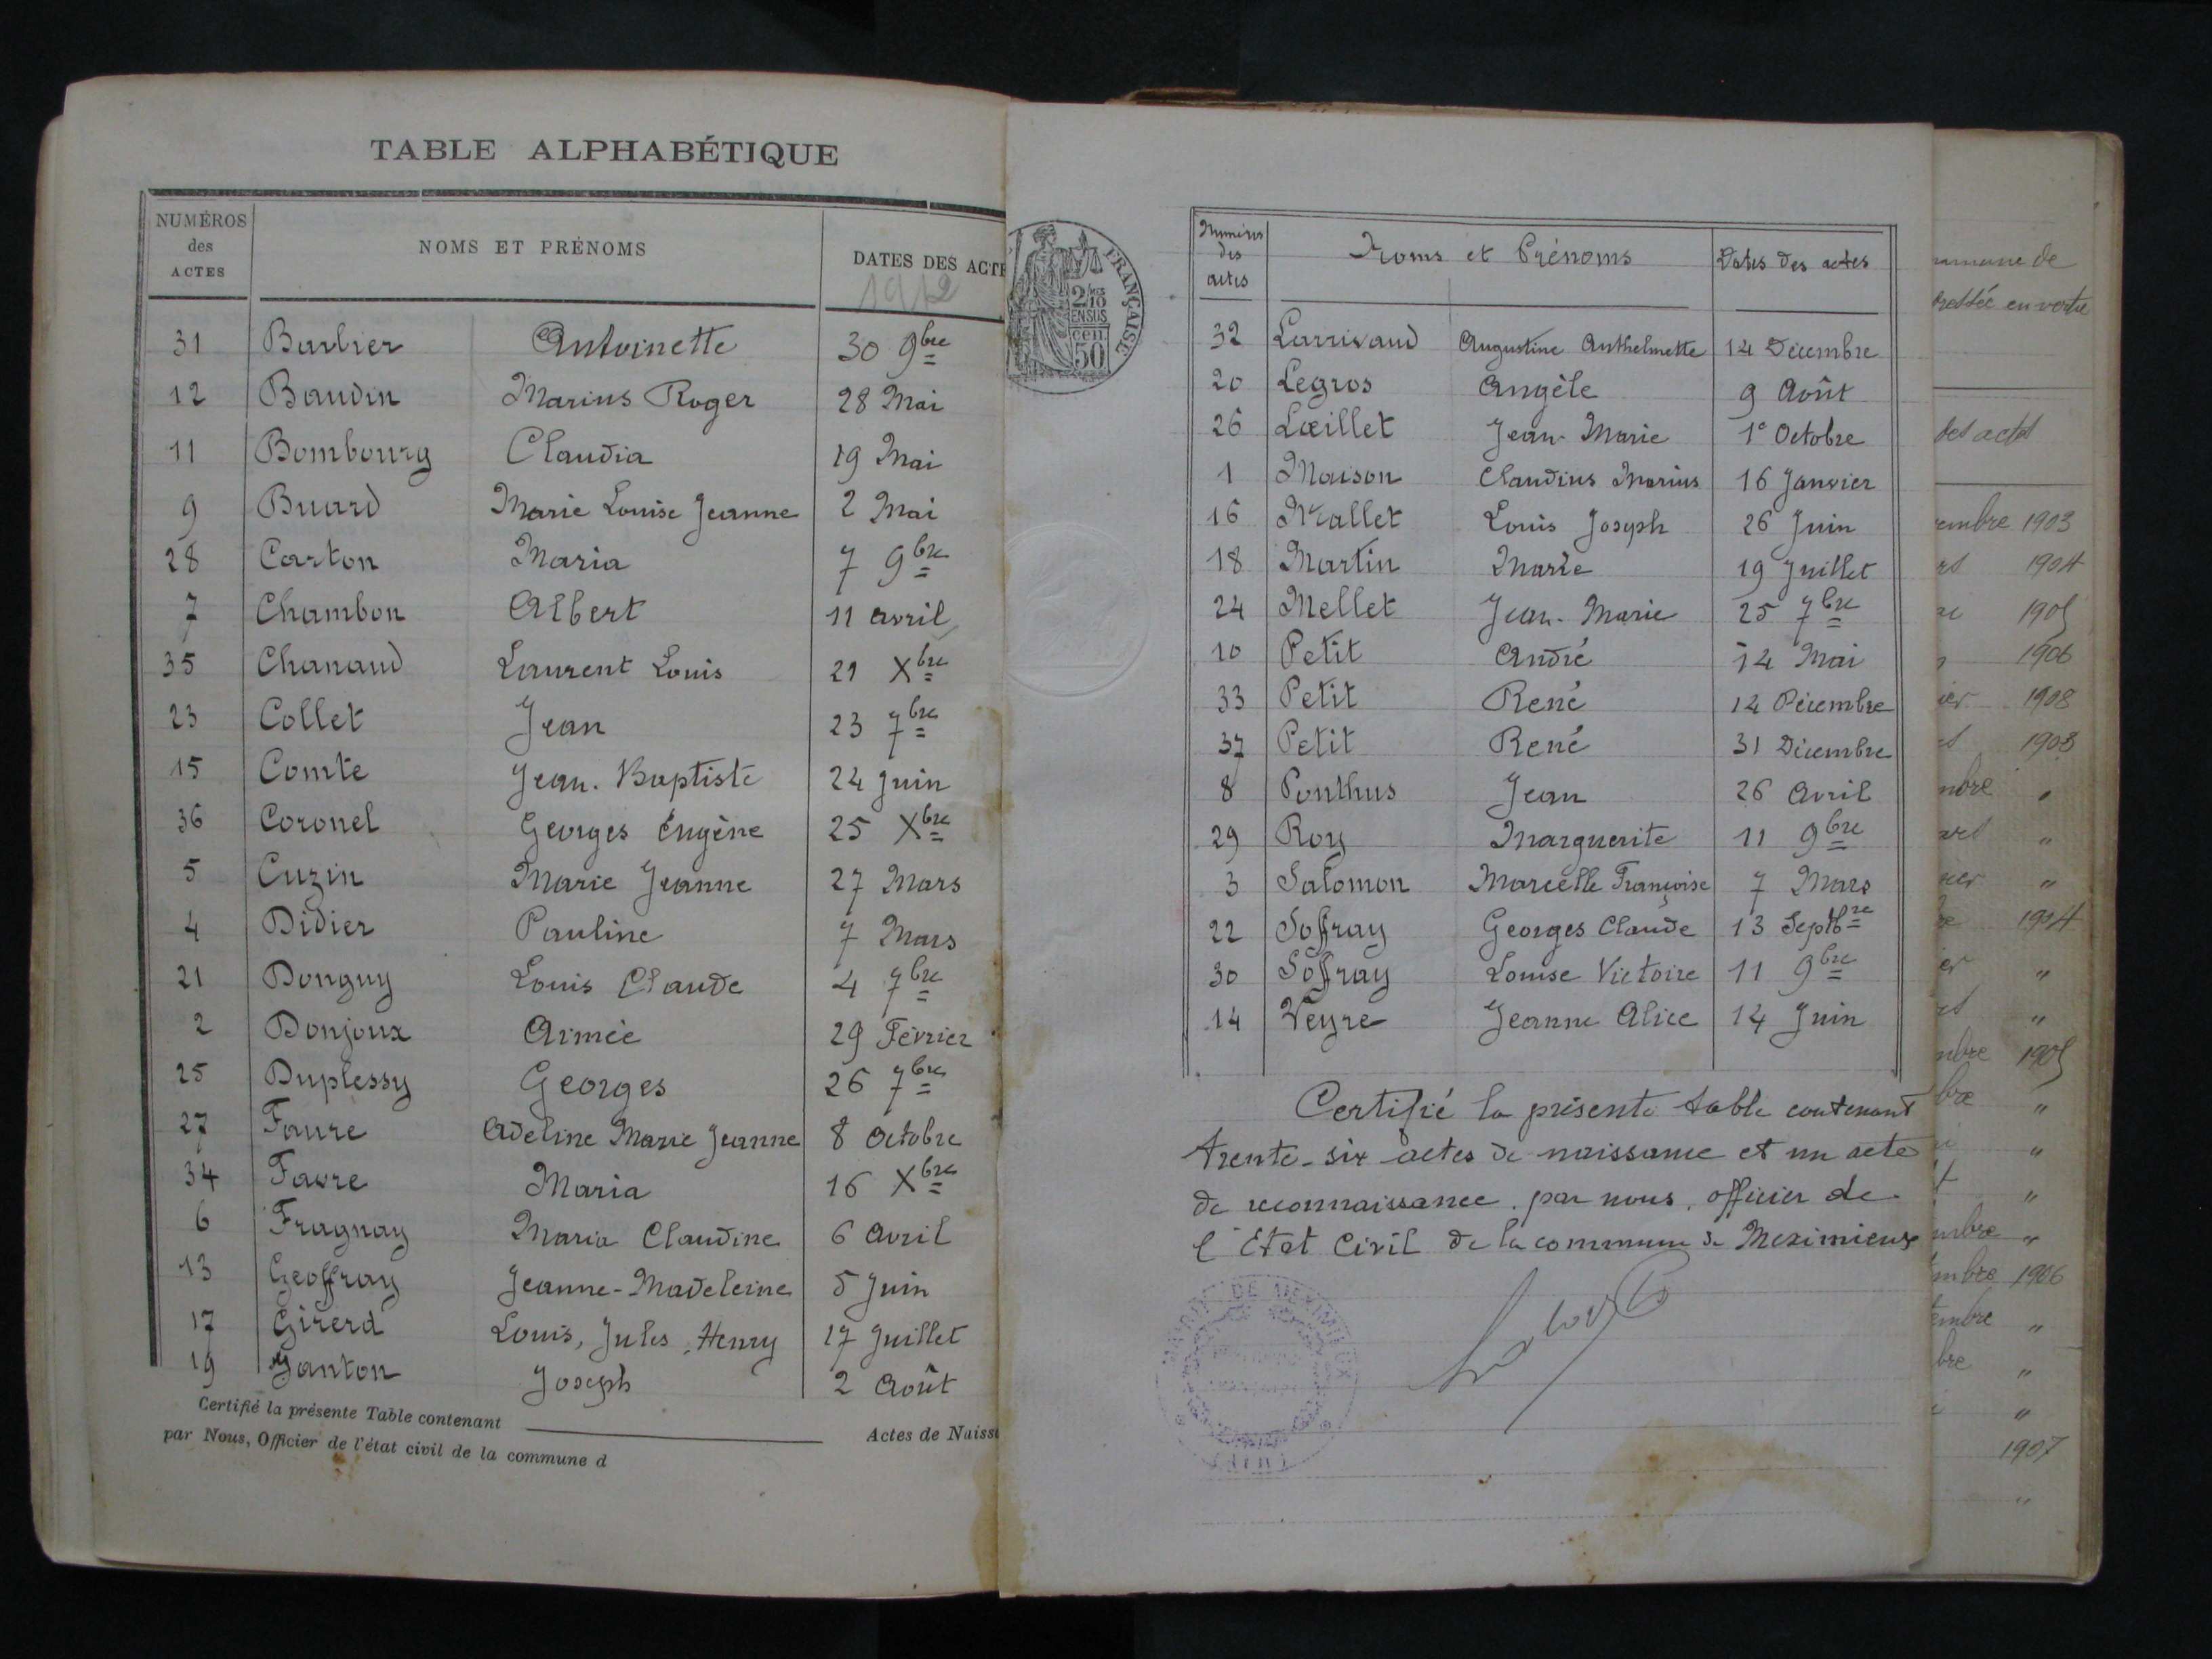 TABLE ALPHABÉTIQUE
NUMÉROS
des
ACTES
NOMS ET PRÉNOMS
DATES DES ACTE
1912
31 Barbier Antoinette 30 9bre
12 Baudin Marius Roger 28 Mai
11 Bombourg Claudia 19 Mai
9 Buard Marie Louise Jeanne 2 Mai
28 Carton Maria 7 9bre
7 Chambon Albert 11 avril
35 Chanaud Laurent Louis 21 Xbre
23 Collet Jean 23 7bre
15 Comte Jean-Baptiste 24 Juin
36 Coronel Georges Eugène 25 Xbre
5 Cuzin Marie Jeanne 27 Mars
4 Didier Pauline 7 Mars
21 Donguy Louis Claude 4 7bre
2 Donjoux Aimée 29 Février
25 Duplessy Georges 26 7bre
27 Faure Adeline Marie Jeanne 8 Octobre
34 Favre Maria 16 Xbre
6 Fragnay Maria Claudine 6 Avril
13 Geoffray Jeanne-Madeleine 5 Juin
17 Girerd Louis, Jules, Henry 17 Juillet
19 Janton Joseph 2 Août
Certifié la présente Table contenant Actes de Naiss
par Nous, Officier de l'état civil de la commune d
FRANÇAISE
2/10
EN SUS
50 cen
Numéros
des
actes
Noms et Prénoms
Dates des actes
32 Larrivaud Augustine Anthelmette 14 Décembre
20 Legros Angèle 9 Août
26 Lœillet Jean-Marie 1e Octobre
1 Maison Claudius Marius 16 Janvier
16 Mallet Louis Joseph 26 Juin
18 Martin Marie 19 Juillet
24 Mellet Jean-Marie 25 7bre
10 Petit André 14 Mai
33 Petit René 14 Décembre
37 Petit René 31 Décembre
8 Ponthus Jean 26 Avril
29 Roy Marguerite 11 9bre
3 Salomon Marcelle Françoise 7 Mars
22 Soffray Georges Claude 13 Septbre
30 Soffray Louise Victoire 11 9bre
14 Veyre Jeanne Alice 14 Juin
Certifié la présente table contenant
trente-six actes de naissance et un acte
de reconnaissance. par nous, officier de
l'Etat Civil de la commune de Meximieux
DE MEXIMIEUX
mmune de
dressée en vertu
des actes
embre 1903
rs 1904
re 1905
1906
ier 1908
et 1903
mbre "
ars "
rier "
re 1904
er "
et "
mbre 1905
bre "
"
"
mbre "
mbre 1906
tembre "
bre "
"
1907
"